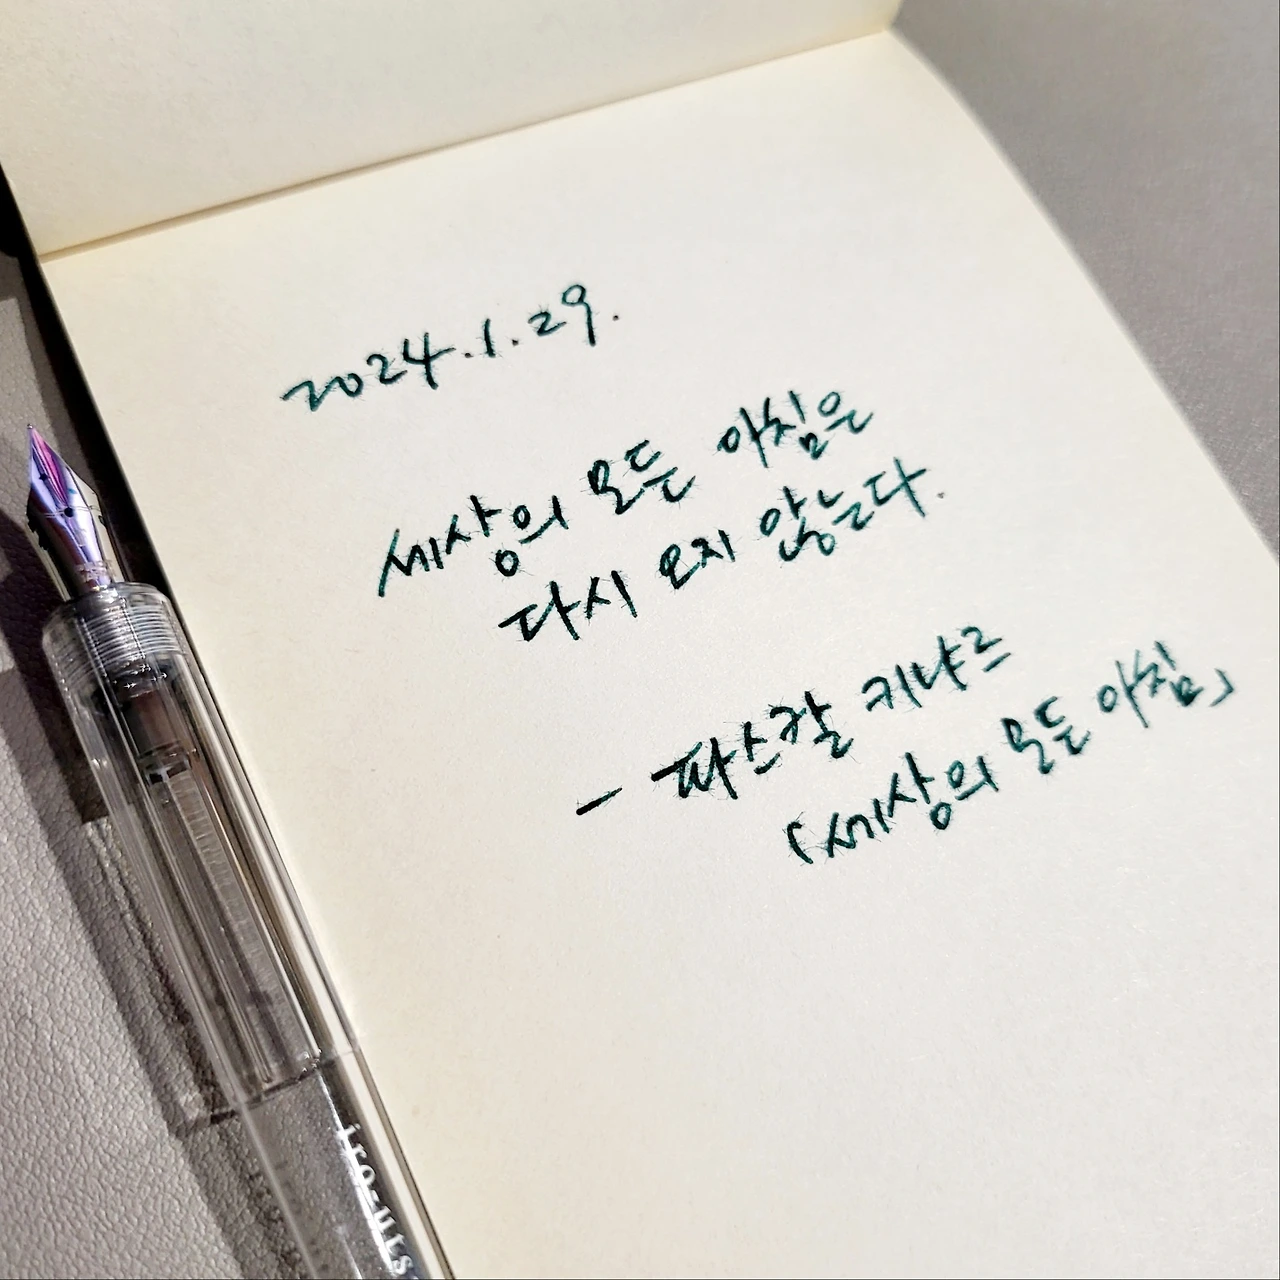 2024.1.29.
세상의 모든 아침은
다시 오지 않는다.
- 파스칼 키냐르
「세상의 모든 아침」
iro-uts